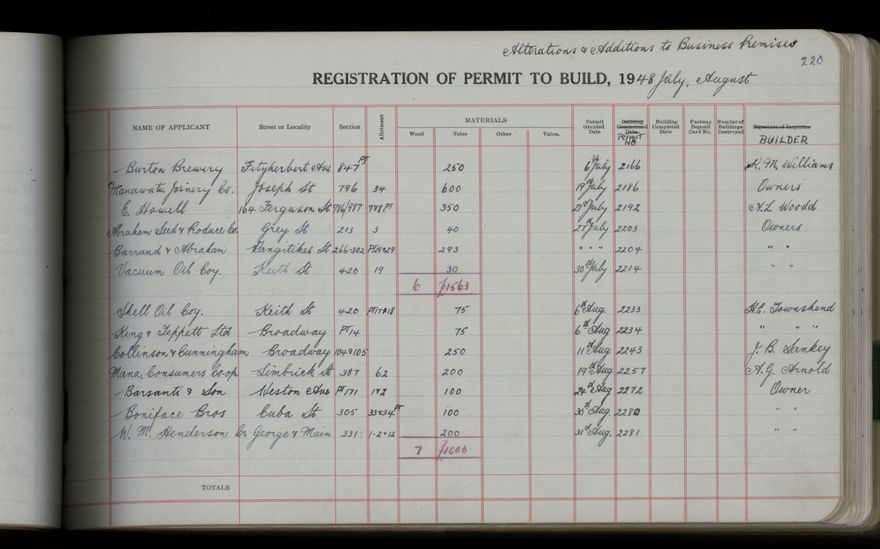 Alterations & Additions to Business Premises
220
REGISTRATION OF PERMIT TO BUILD, 1948 July, August
NAME OF APPLICANT Street or Locality Section Allotment MATERIALS Permit Granted Date Building Commenced Date Permit No Building Completed Date Footway Deposit Card No. Number of Buildings Destroyed Signature of Inspector BUILDER
Wood Value Other Value.
Burton Brewery Fitzherbert Ave 847 PT 250 6th July 2166 K. M. Williams
Manawatu Joinery Co. Joseph St 796 34 600 19th July 2186 Owners
E. Howell 164 Ferguson St 786/987 7&8 PT 350 21st July 2192 A.L. Wood
Abraham Seed & Produce Co. Grey St 213 3 40 27th July 2203 Owners
Barraud & Abraham Rangitikei St 266-302 PT 293 " " " 2204 " "
Vacuum Oil Coy. Keith St 420 19 30 30th July 2214 " "
6 £1563
Shell Oil Coy. Keith St 420 PT 17&18 75 6th Aug. 2233 H.E. Townshend
King & Teppett Ltd Broadway PT 14 75 6th Aug 2234 " " "
Collinson & Cunningham Broadway 104&105 250 11th Aug 2243 J. B. Sankey
Mana. Consumers Coop Limbrick St 387 62 200 19th Aug 2257 A.G. Arnold
Barsanti & Son Weston Ave PT 171 1&2 100 24th Aug 2272 Owner
Boniface Bros Cuba St 305 33&34 PT 100 30th Aug. 2280 " "
W. M. Henderson Cr George & Main 331 1-2&12 200 31st Aug. 2281 " "
7 £1000
TOTALS